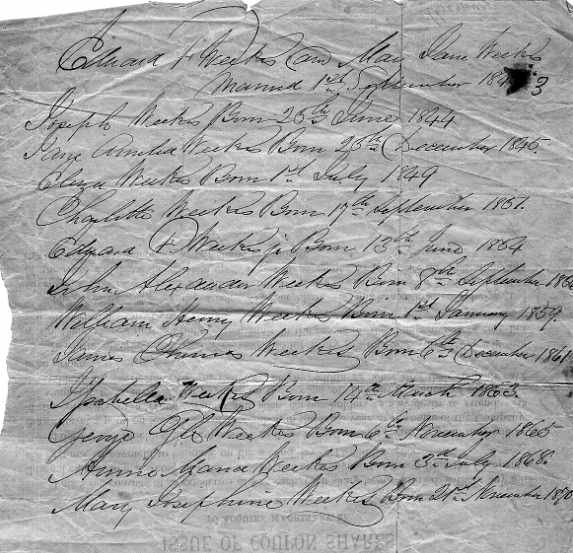 Edward F Weekes and Mary Jane Weekes
Married 1st September 1843
Joseph Weekes Born 25th June 1844
Jane Amelia Weekes Born 25th December 1845.
Eliza Weekes Born 1st July 1849
Charlotte Weekes Born 17th September 1851.
Edward F Weekes jr Born 13th June 1854
John Alexander Weekes Born 8th September 1856
William Henry Weekes Born 1st January 1859.
James Weekes Born 6th December 1861
Isabella Weekes Born 14th March 1863.
George Weekes Born 6th November 1865
Annie Maria Weekes Born 3rd July 1868.
Mary Josephine Weekes Born 21st November 1870
ISSUE OF COUPON SHARES